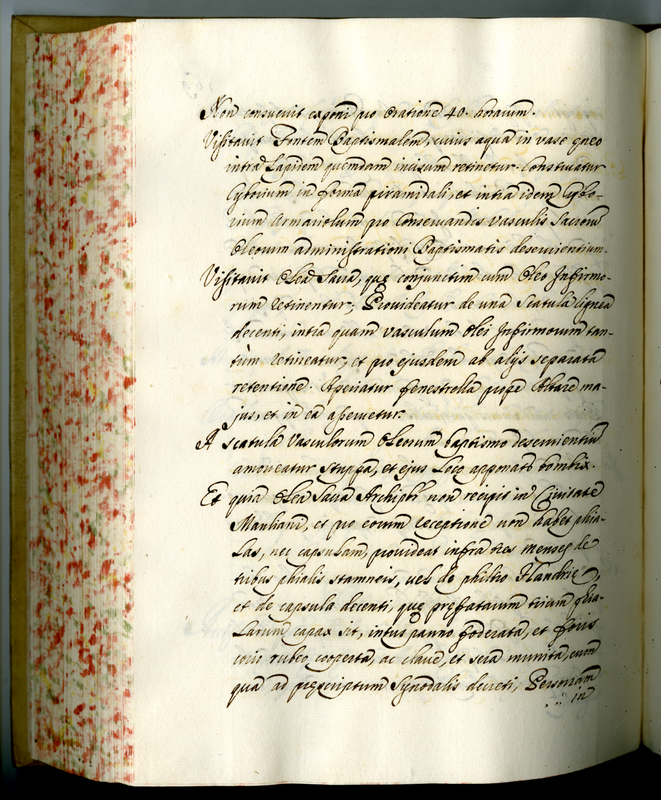 Non consuevit exponi pro Oratione 40. horarum.
Visitavit Fontem Baptismalem, cuius aqua in vase ęneo
intra Lapidem quendam incisum retinetur. Construatur
Cyborium in forma piramidali, et intra idem Cybo-
rium Armariolum pro Conservandis Vasculis Sacrorum
Oleorum administrationi Baptismatis deservientium.
Visitavit Olea Sacra, quę conjunctim cum Oleo Infirmo-
rum retinentur; Provideatur de una Scatula lignea
decenti, intra quam vasculum Olei Infirmorum tan-
tùm retineatur, et pro ejusdem ab alijs separata
retentione. Aperiatur fenestrella prope Altare ma-
jus, et in ea asservetur.
A Scatula Vasculorum Oleorum baptismo deservientium
amoveatur stuppa, et ejus Loco apponatur bombix.
Et quia Olea Sacra Archipbr non recipit in Civitate
Marsicana, et pro eorum receptione non habet phia-
las, nec capsulam, provideat infra tres menses de
tribus phialis stamneis, vel de philtro Flandrię,
et de capsula decenti, quę pręfatarum trium phia-
Larum capax sit, intus panno foderata, et foris
corio rubeo cooperta, ac clave, et sera munita, cum
qua ad pręscriptum Synodalis decreti, Personam
in